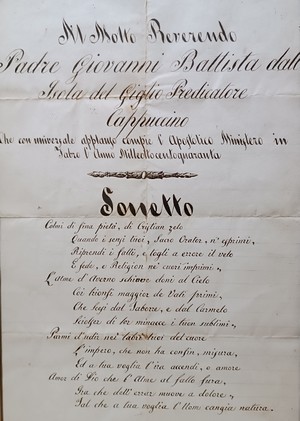 Al Molto Reverendo
Padre Giovanni Battista dall'
Isola del Giglio Predicatore
Cappuccino
Che con universale applauso compie l'Apostolico Ministero in
l'Anno Milleottocentoquaranta
Sonetto
Colmi di fina pietà, di Cristian zelo
Quando i sensi tuoi, Sacro Orator, n'esprimi,
Riprendi il fallo, e togli a errore il velo
E fede, e Religion ne' cuori imprimi,
L'alme d'Averno schiave doni al Cielo
Coi trionfi maggior de' Vati primi,
Che Segi dal Taborre, e dal Carmelo
di tue minacce i tuon sublimi,
Parmi d'udir ne' labri tuoi del cuore
L'impero, che non ha confin, misura,
Ed a tua voglia l'ira accendi, e amore
Amor di Dio che l'Alme al fallo fura,
Ira che dell'error muove a dolore,
Tal che a tua voglia l'Uom cangia natura.